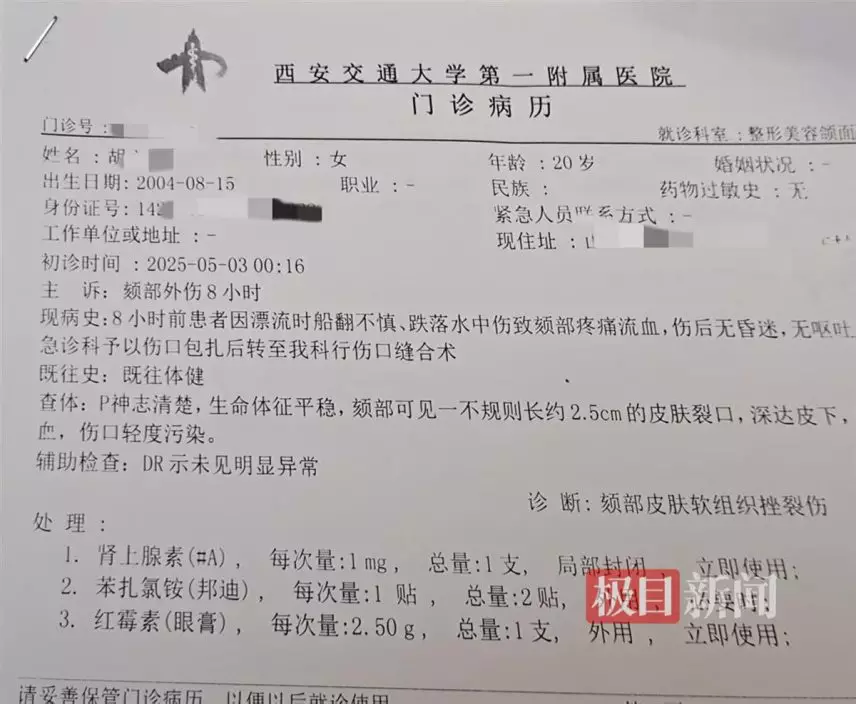 西安交通大学第一附属医院
门诊病历
门诊号：
就诊科室：整形美容颌面
姓名：胡 性别：女 年龄：20岁 婚姻状况：-
出生日期：2004-08-15 职业：- 民族： 药物过敏史：无
身份证号：142 紧急人员联系方式：-
工作单位或地址：- 现住址：
初诊时间：2025-05-03 00:16
主 诉：颏部外伤8小时
现病史：8小时前患者因漂流时船翻不慎、跌落水中伤致颏部疼痛流血，伤后无昏迷，无呕吐
急诊科予以伤口包扎后转至我科行伤口缝合术
既往史：既往体健
查体：P神志清楚，生命体征平稳，颏部可见一不规则长约2.5cm的皮肤裂口，深达皮下，
血，伤口轻度污染。
辅助检查：DR示未见明显异常
诊 断：颏部皮肤软组织挫裂伤
处 理：
1. 肾上腺素(#A)， 每次量:1mg， 总量:1支， 局部封闭， 立即使用;
2. 苯扎氯铵(邦迪)， 每次量:1 贴， 总量:2贴， 外用， 必要时;
3. 红霉素(眼膏)， 每次量:2.50g， 总量:1支， 外用， 立即使用;
极目新闻
请妥善保管门诊病历，以便以后就诊使用